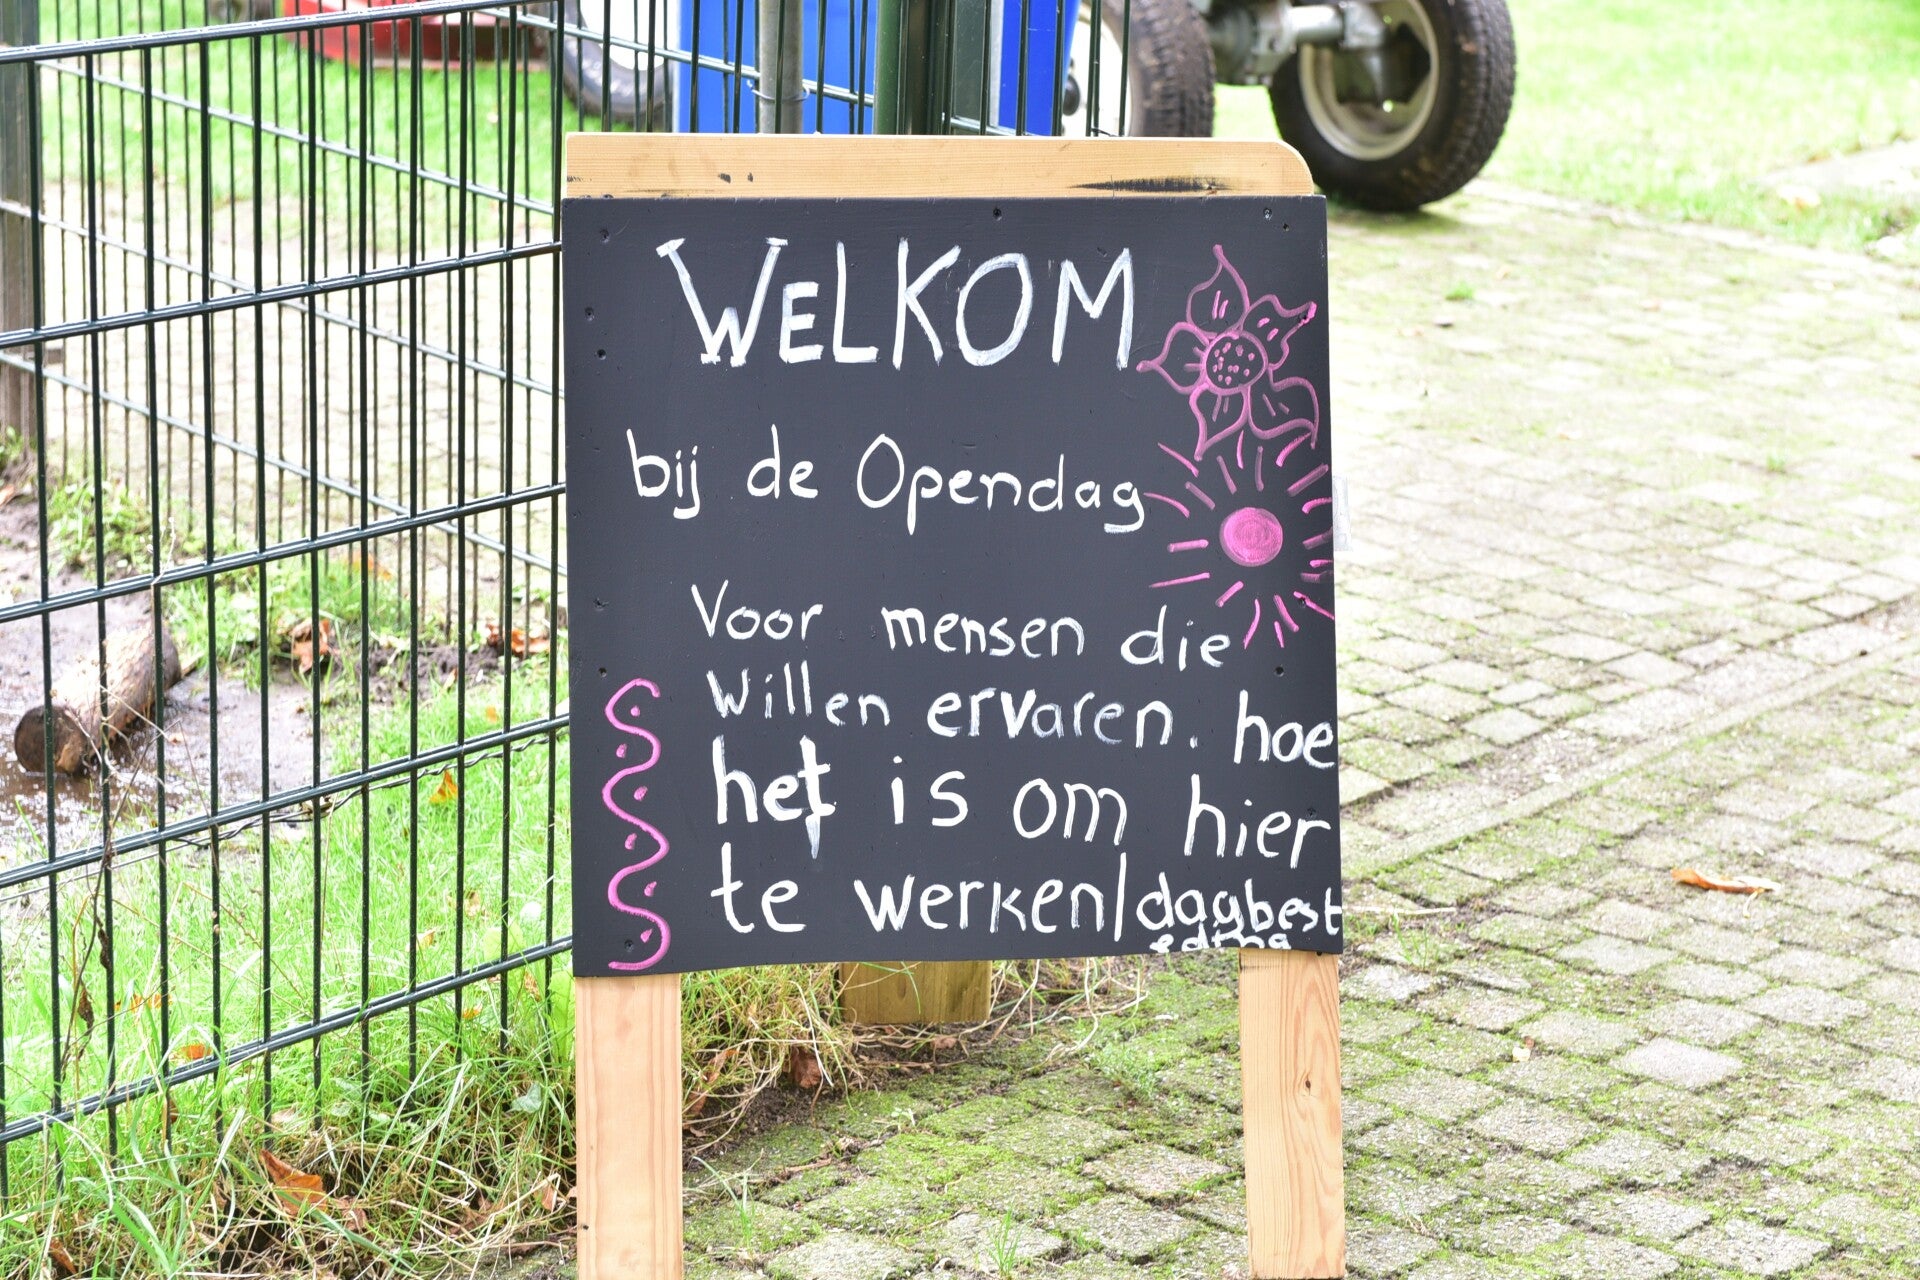 WELKOM
bij de Opendag
Voor mensen die
willen ervaren. hoe
het is om hier
te werken/dagbest
eding